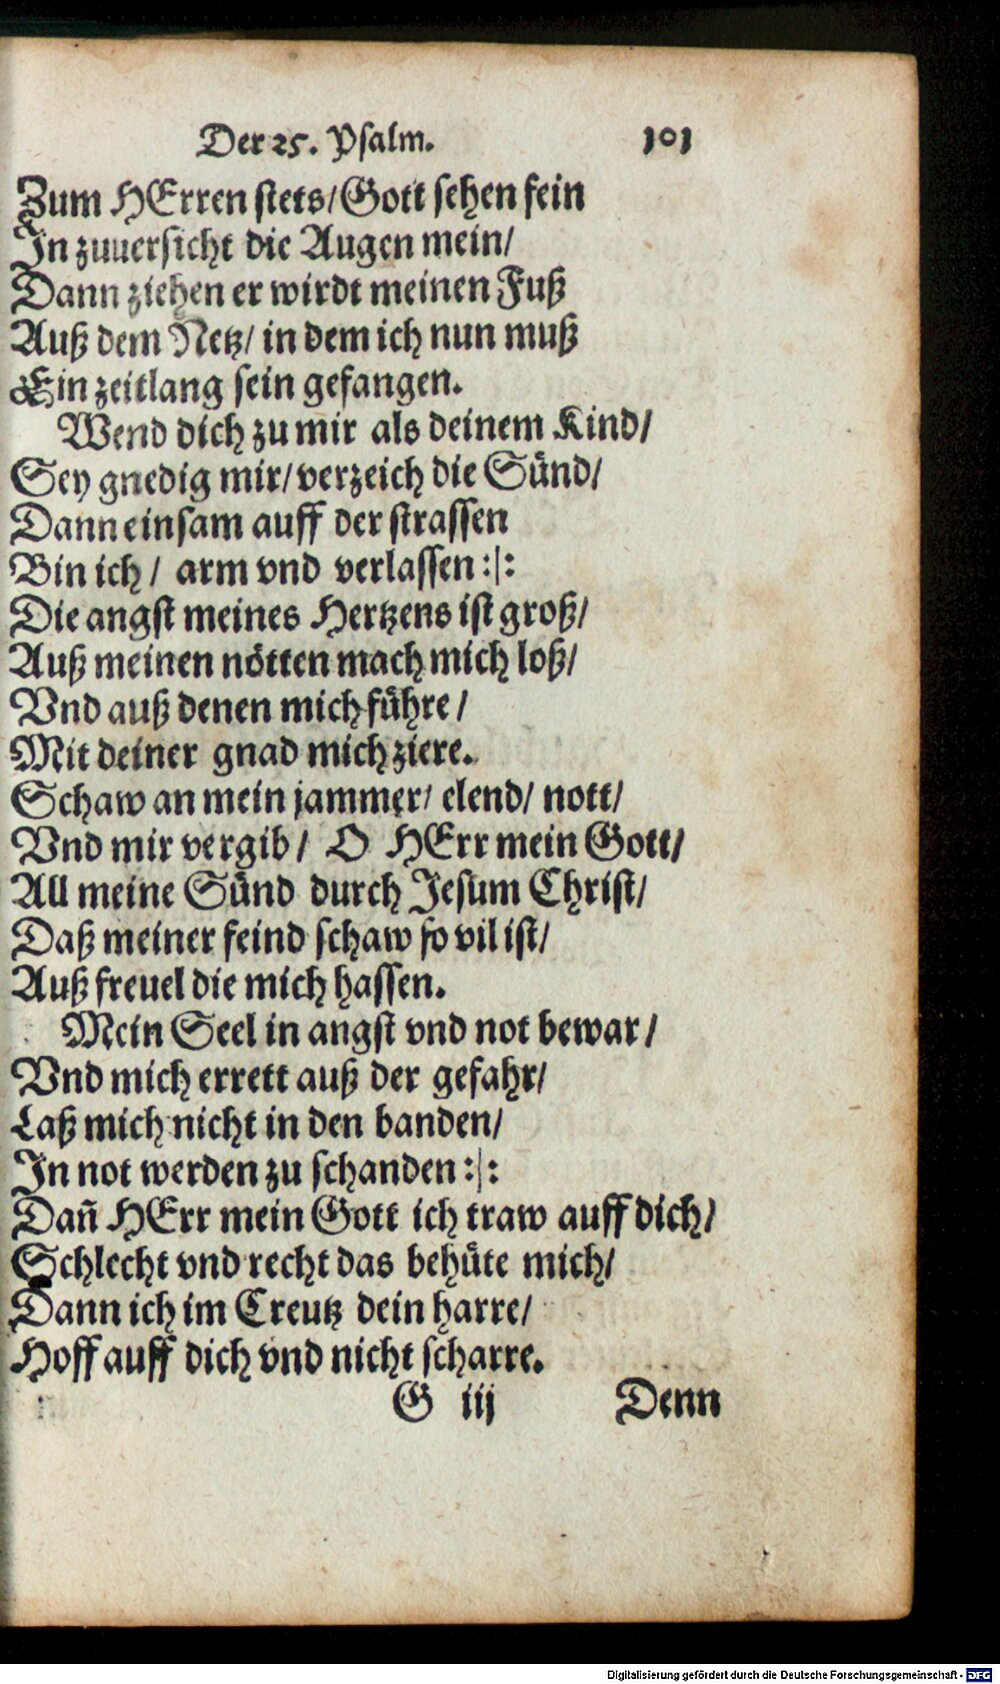 Der 25. Psalm. 101
Zum HErren stets/ Gott sehen fein
In zuuersicht die Augen mein/
Dann ziehen er wirdt meinen Fuß
Auß dem Netz/ in dem ich nun muß
Ein zeitlang sein gefangen.
Wend dich zu mir als deinem Kind/
Sey gnedig mir/ verzeich die Sünd/
Dann einsam auff der strassen
Bin ich/ arm vnd verlassen :|:
Die angst meines Hertzens ist groß/
Auß meinen nötten mach mich loß/
Vnd auß denen mich führe/
Mit deiner gnad mich ziere.
Schaw an mein jammer/ elend/ nott/
Vnd mir vergib/ O HErr mein Gott/
All meine Sünd durch Jesum Christ/
Daß meiner feind schaw so vil ist/
Auß freuel die mich hassen.
Mein Seel in angst vnd not bewar/
Vnd mich errett auß der gefahr/
Laß mich nicht in den banden/
In not werden zu schanden :|:
Dañ HErr mein Gott ich traw auff dich/
Schlecht vnd recht das behüte mich/
Dann ich im Creutz dein harre/
Hoff auff dich vnd nicht scharre.
G iij Denn
Digitalisierung gefördert durch die Deutsche Forschungsgemeinschaft - DFG